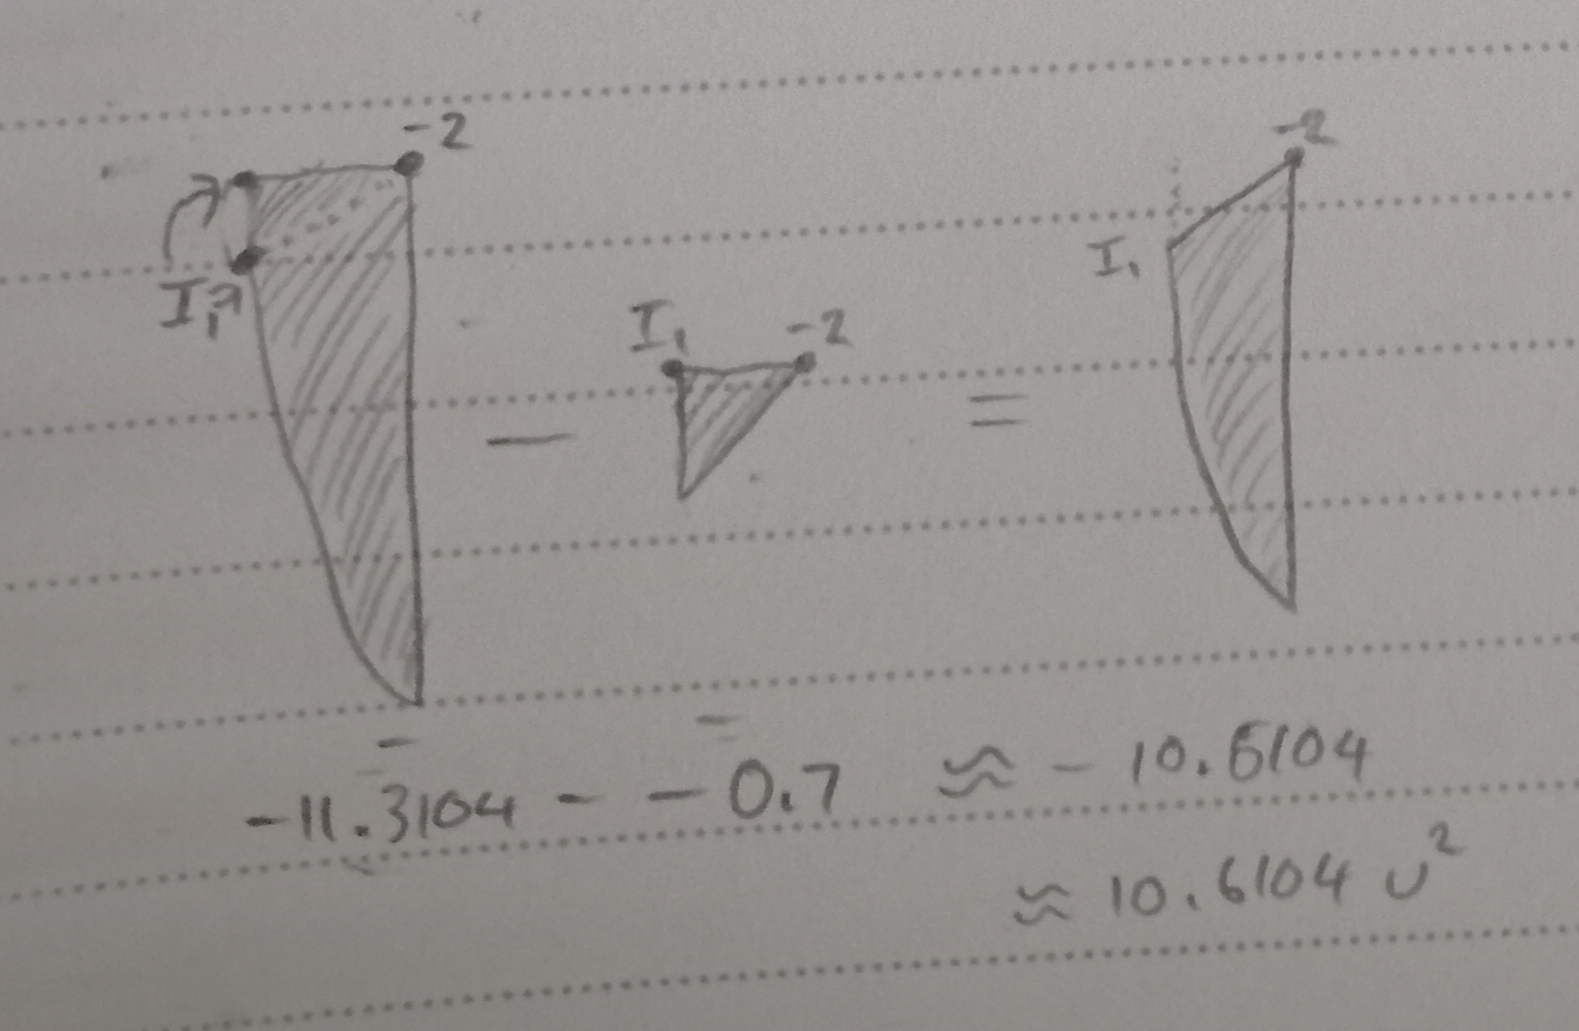 -2
-2
I₁
I₁
-2
I₁
−
=
-11.3104 - -0.7 ≈ -10.6104
≈ 10.6104 u²